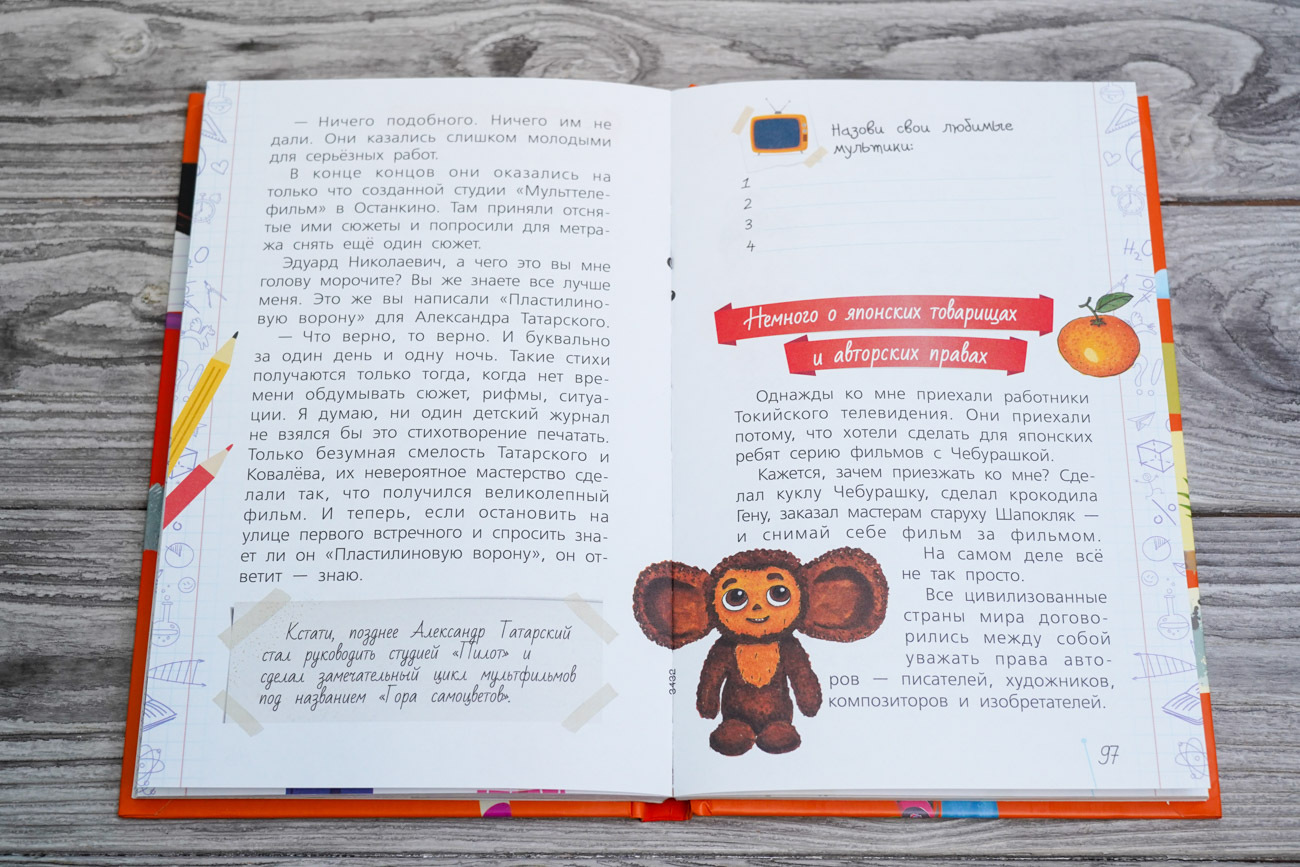 — Ничего подобного. Ничего им не
дали. Они казались слишком молодыми
для серьёзных работ.
В конце концов они оказались на
только что созданной студии «Мульттеле-
фильм» в Останкино. Там приняли отсня-
тые ими сюжеты и попросили для метра-
жа снять ещё один сюжет.
Эдуард Николаевич, а чего это вы мне
голову морочите? Вы же знаете все лучше
меня. Это же вы написали «Пластилино-
вую ворону» для Александра Татарского.
— Что верно, то верно. И буквально
за один день и одну ночь. Такие стихи
получаются только тогда, когда нет вре-
мени обдумывать сюжет, рифмы, ситуа-
ции. Я думаю, ни один детский журнал
не взялся бы это стихотворение печатать.
Только безумная смелость Татарского и
Ковалёва, их невероятное мастерство сде-
лали так, что получился великолепный
фильм. И теперь, если остановить на
улице первого встречного и спросить зна-
ет ли он «Пластилиновую ворону», он от-
ветит — знаю.
Кстати, позднее Александр Татарский
стал руководить студией «Пилот» и
сделал замечательный цикл мультфильмов
под названием «Гора самоцветов».
Назови свои любимые
мультики:
1
2
3
4
Немного о японских товарищах
и авторских правах
Однажды ко мне приехали работники
Токийского телевидения. Они приехали
потому, что хотели сделать для японских
ребят серию фильмов с Чебурашкой.
Кажется, зачем приезжать ко мне? Сде-
лал куклу Чебурашку, сделал крокодила
Гену, заказал мастерам старуху Шапокляк —
и снимай себе фильм за фильмом.
На самом деле всё
не так просто.
Все цивилизованные
страны мира догово-
рились между собой
уважать права авто-
ров — писателей, художников,
композиторов и изобретателей.
3432
97
H₂O